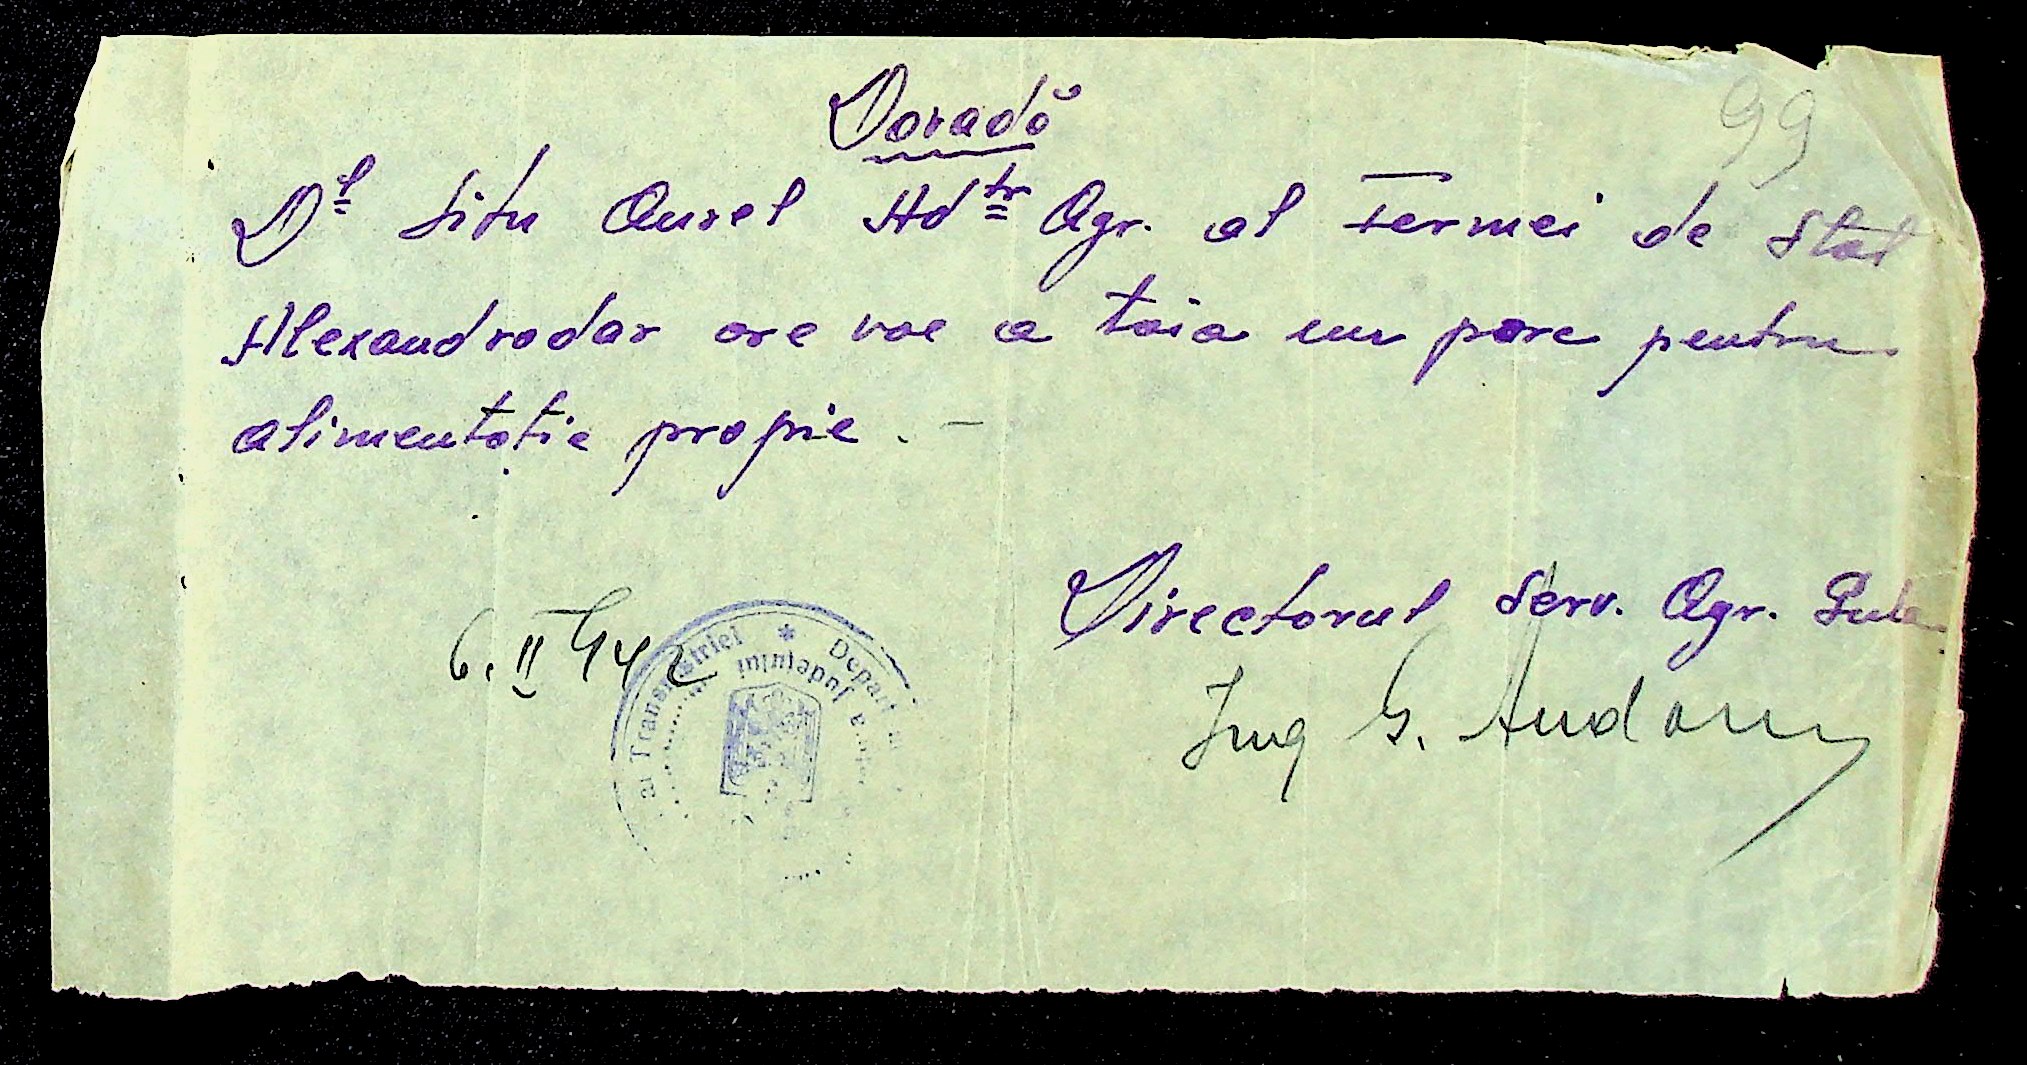 Dovadă
99
Dˡ Situ Aurel Adᵗʳ Agr. al Fermei de Stat
Alexandrodar are voe a taia un porc pentru
alimentație proprie. —
Directorul Serv. Agr.
6. II 942
Ing G.
al Transnistriei * Depart
Județului